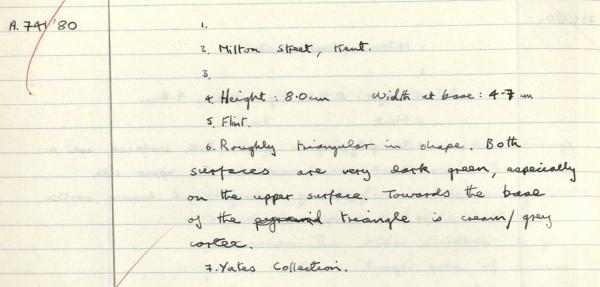 A. 741 '80
1.
2. Milton Street, Kent.
3.
4. Height: 8.0cm Width at base: 4.7 cm
5. Flint.
6. Roughly triangular in shape. Both
surfaces are very dark green, especially
on the upper surface. Towards the base
of the pyramid triangle is cream/grey
cortex.
7. Yates Collection.